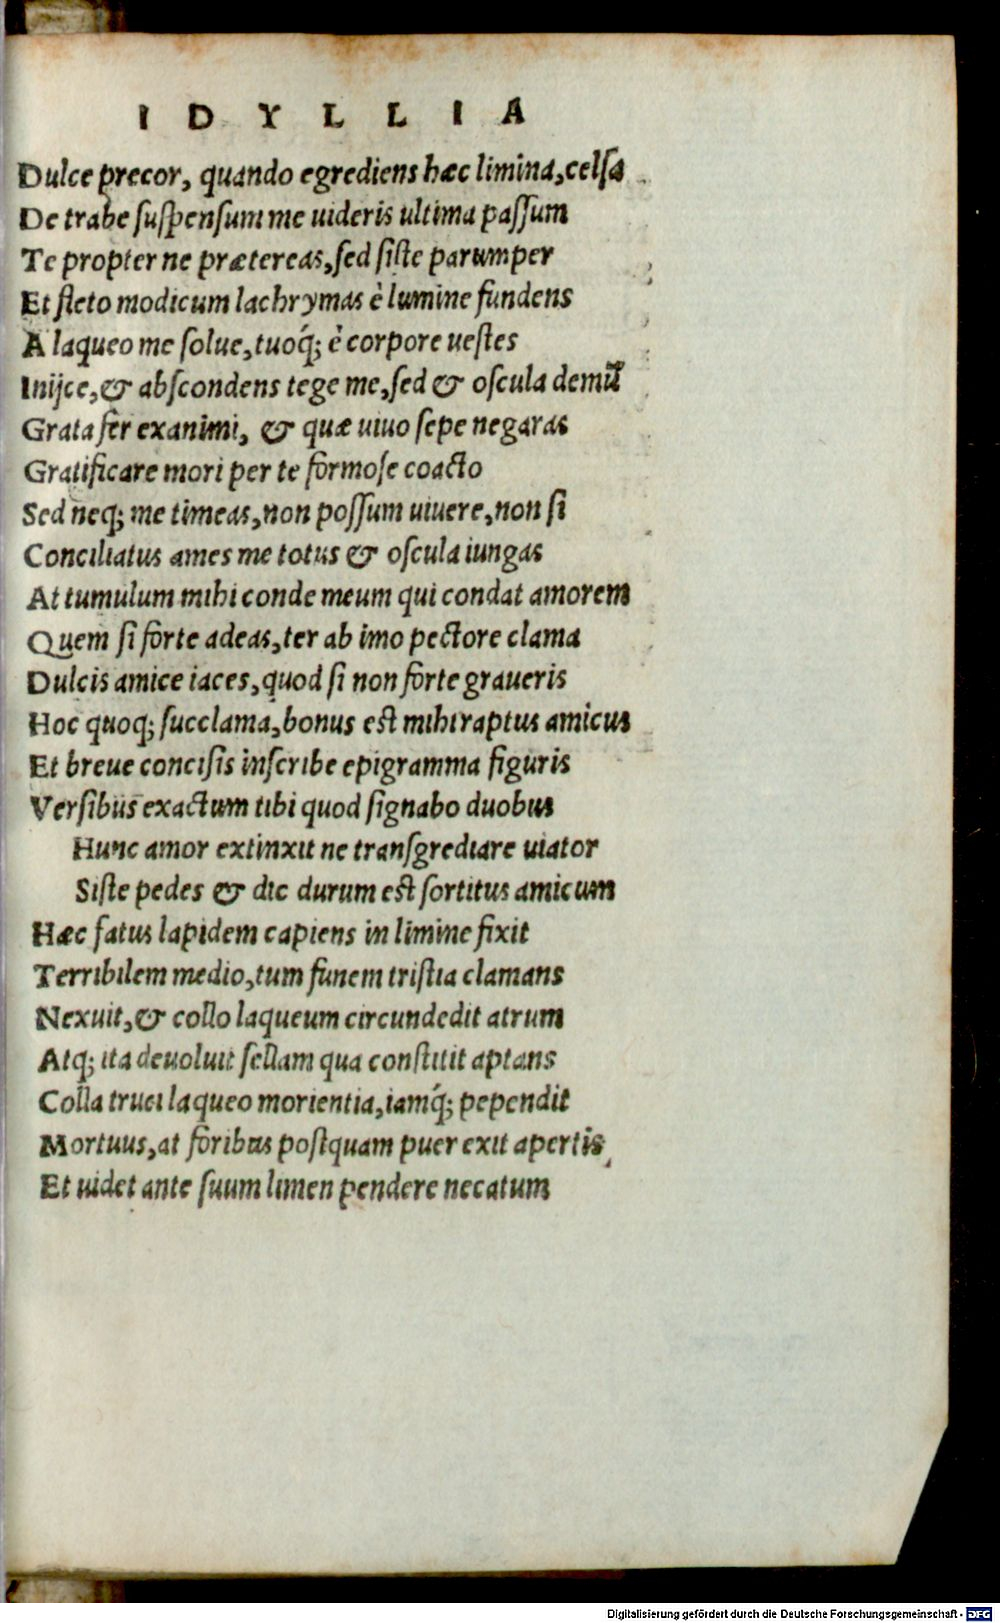 IDYLLIA
Dulce precor, quando egrediens hæc limina, celsa
De trabe suspensum me uideris ultima passum
Te propter ne prætereas, sed siste parumper
Et fleto modicum lachrymas è lumine fundens
A laqueo me solue, tuoq́; è corpore uestes
Inijce, & abscondens tege me, sed & oscula demũ
Grata fer exanimi, & quæ uiuo sepe negaras
Gratificare mori per te formose coacto
Sed neq; me timeas, non possum uiuere, non si
Conciliatus ames me totus & oscula iungas
At tumulum mihi conde meum qui condat amorem
Quem si forte adeas, ter ab imo pectore clama
Dulcis amice iaces, quod si non forte graueris
Hoc quoq; succlama, bonus est mihi raptus amicus
Et breue concisis inscribe epigramma figuris
Versibus exactum tibi quod signabo duobus
Hunc amor extinxit ne transgrediare uiator
Siste pedes & dic durum est sortitus amicum
Hæc fatus lapidem capiens in limine fixit
Terribilem medio, tum funem tristia clamans
Nexuit, & collo laqueum circundedit atrum
Atq; ita deuoluit sellam qua constitit aptans
Colla truci laqueo morientia, iamq́; pependit
Mortuus, at foribus postquam puer exit apertis
Et uidet ante suum limen pendere necatum
Digitalisierung gefördert durch die Deutsche Forschungsgemeinschaft - DFG